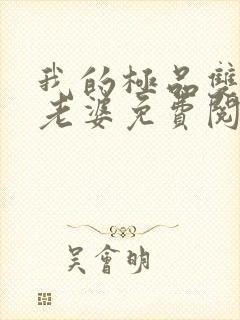 我的極品雙
老婆免費閱
吳會明